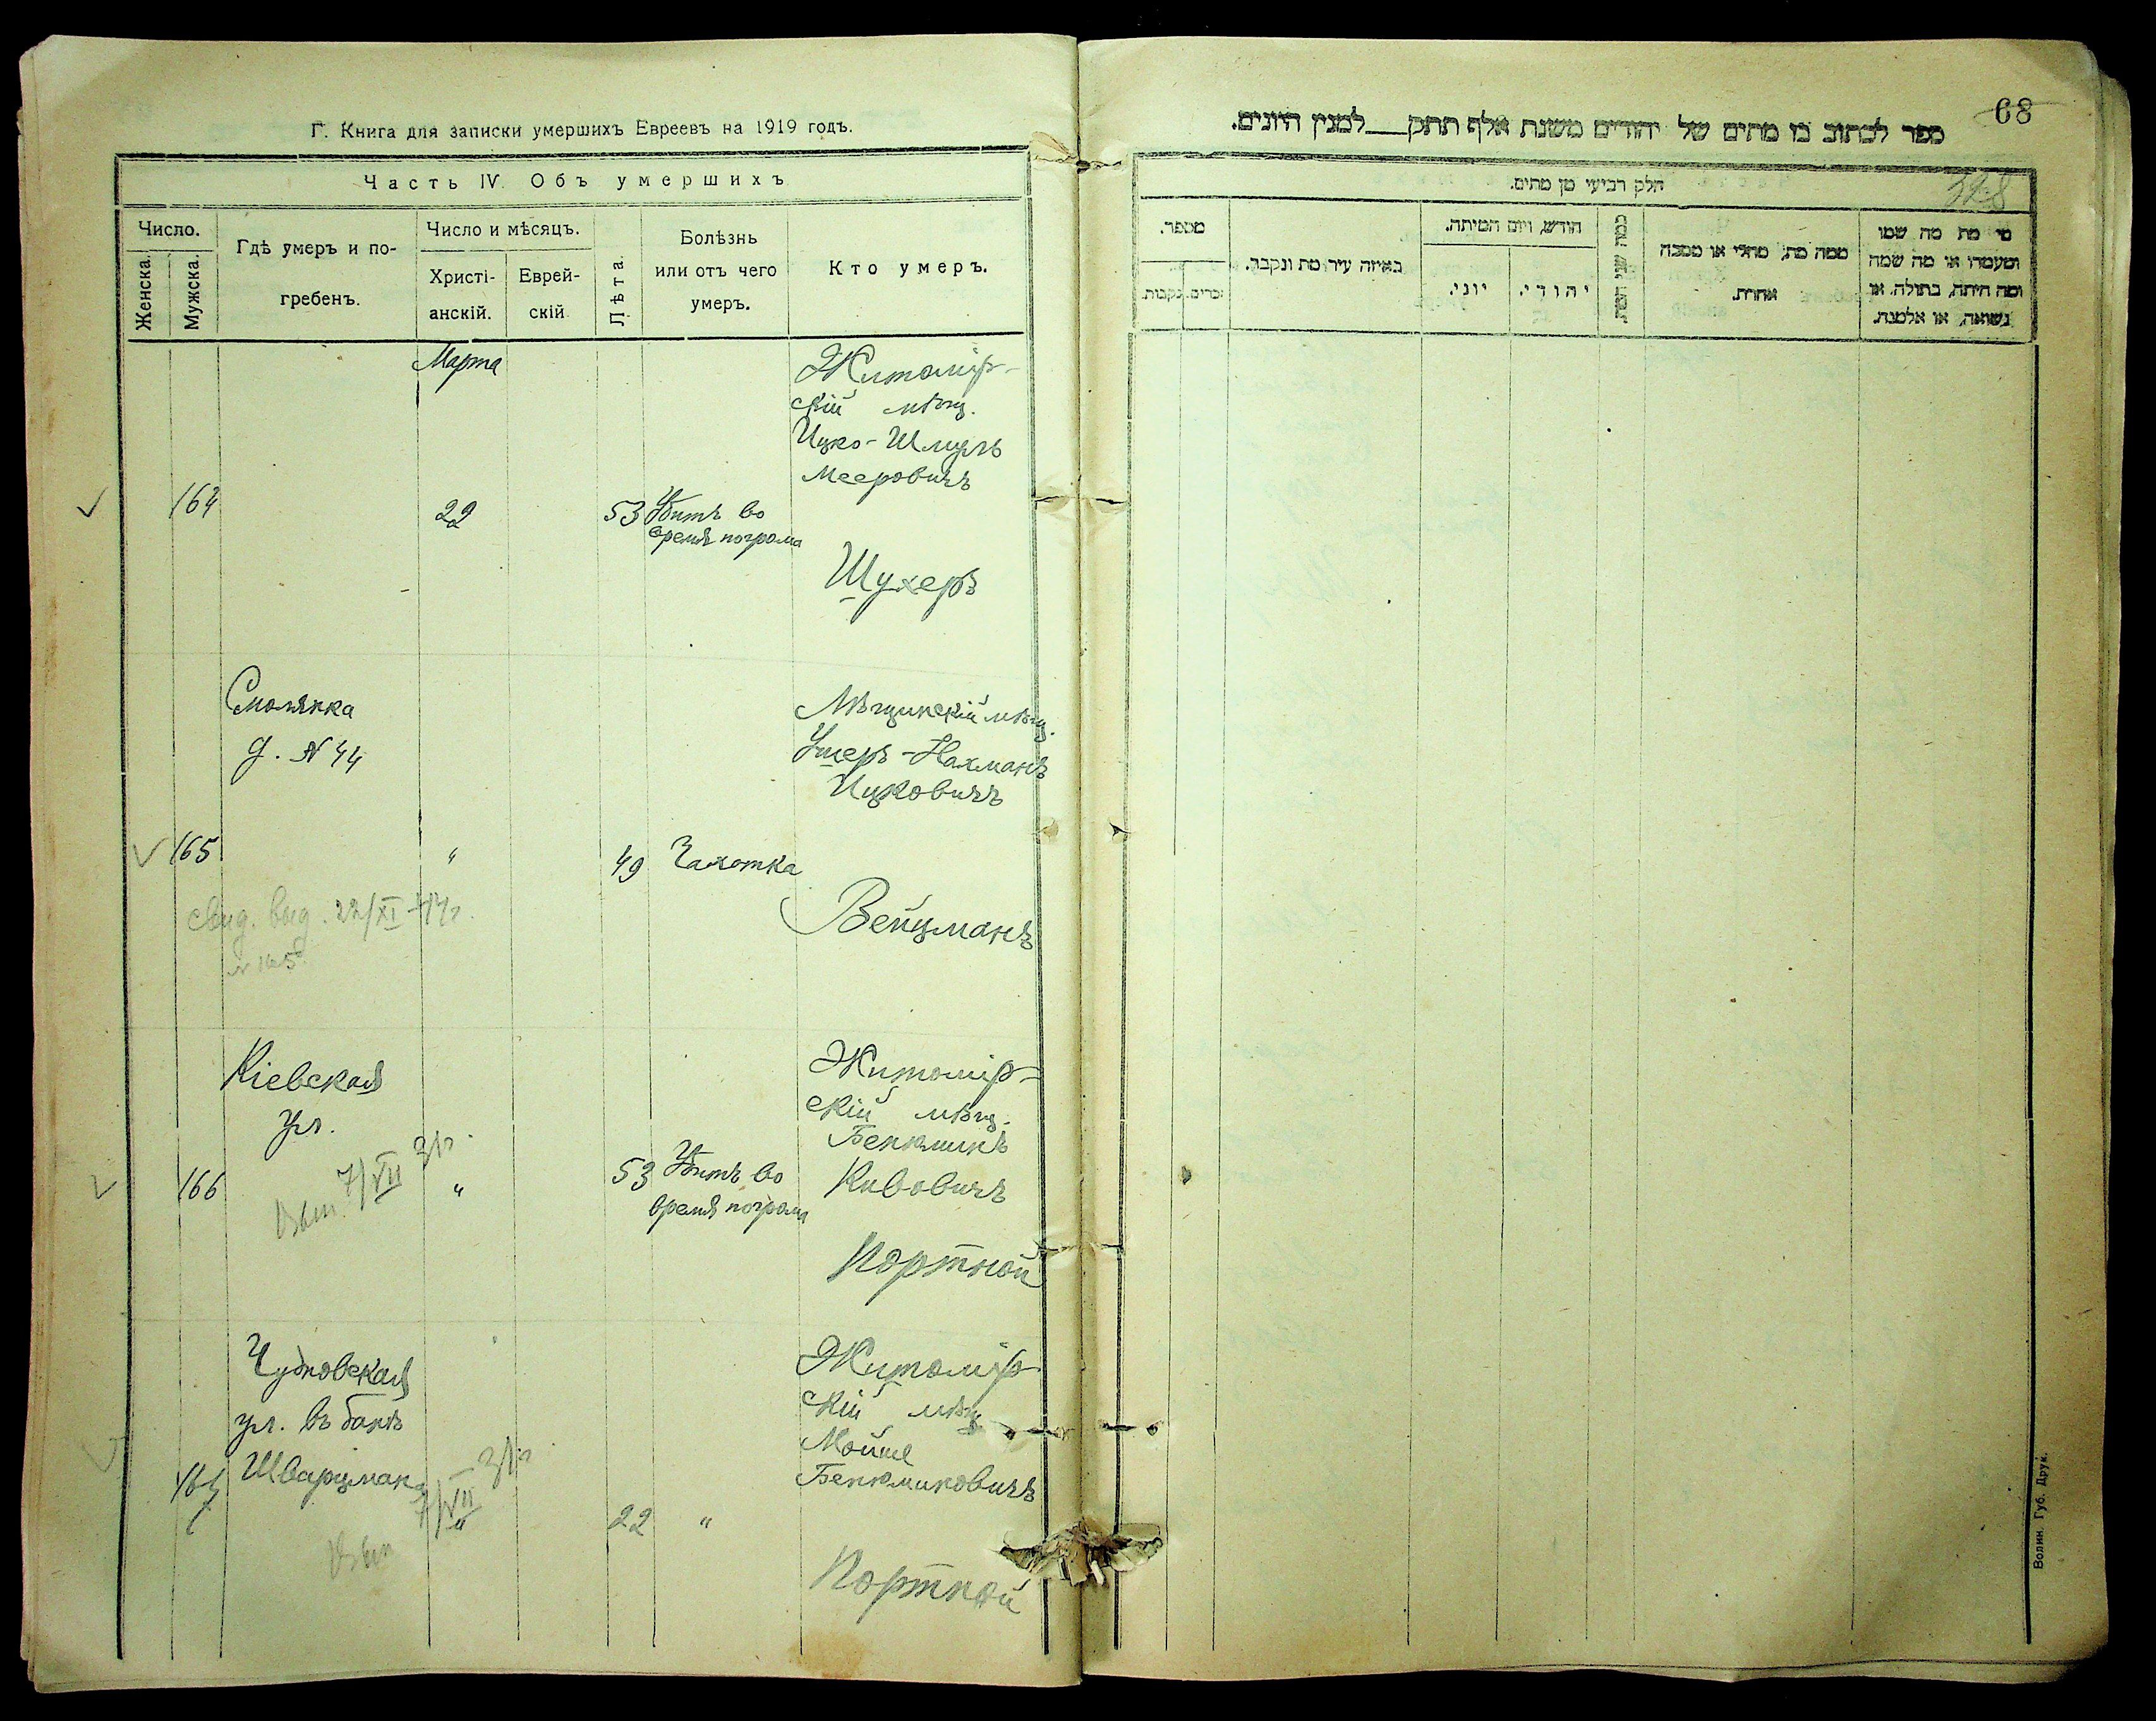 Г. Книга для записки умершихъ Евреевъ на 1919 годъ.
Часть IV. Объ умершихъ
Число.
Женска.
Мужска.
Гдѣ умеръ и по-
гребенъ.
Число и мѣсяцъ.
Христі-
анскій.
Еврей-
скій
Лѣта.
Болѣзнь
или отъ чего
умеръ.
Кто умеръ.
Марта
Житомір-
скій мѣщ.
Ицко-Шмуль
Мееровичъ
164
22
53
Убитъ во
время погрома
Шухеръ
Смолянка
д. N 44
Ушеръ-Нахманъ
Ицковичъ
165
"
49
Чахотка
Вейцманъ
22/XI
N 165
Кіевская
ул.
Житомір-
скій мѣщ.
Беньминъ
7/VII 31г.
166
"
53
Убитъ во
время погрома
Кивовичъ
Портной
Чудновская
ул. въ банѣ
Шварцмана
Житомір-
скій мѣщ
Мойше
Беньминовичъ
7/VII 31г.
167
"
22
"
Портной
68
ספר לכתוב בו מתים של יהודים משנת אלף תתק___למנין היונים.
חלק רביעי מן מתים.
328
מספר.
זכרים.
נקבות.
באיזה עיר מת ונקבר.
חודש, ויום המיתה.
יוני.
יהודי.
כמה שני המת.
ממה מת, מחלי או מסבה
אחרת.
מי מת מה שמו
ומעמדו או מה שמה
ומה היתה, בתולה, או
נשואה, או אלמנה.
Волин. Губ. Друк.